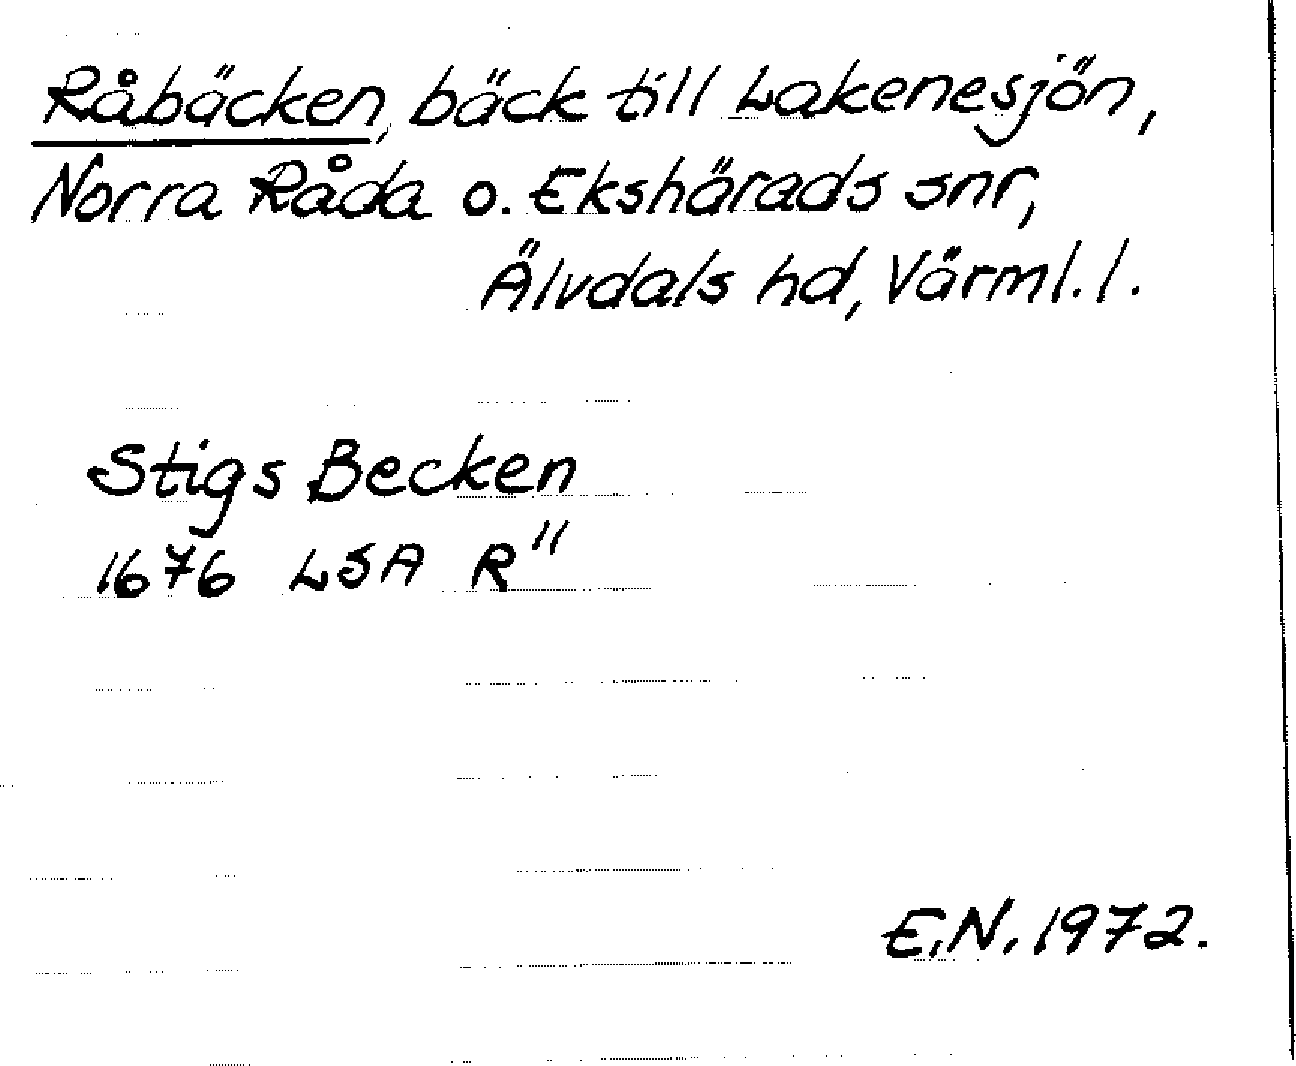 Råbäcken, bäck till Lakenesjön,
Norra Råda o. Ekshärads snr,
Älvdals hd, Värml. l.
Stigs Becken
1676 LSA R"
E.N. 1972.